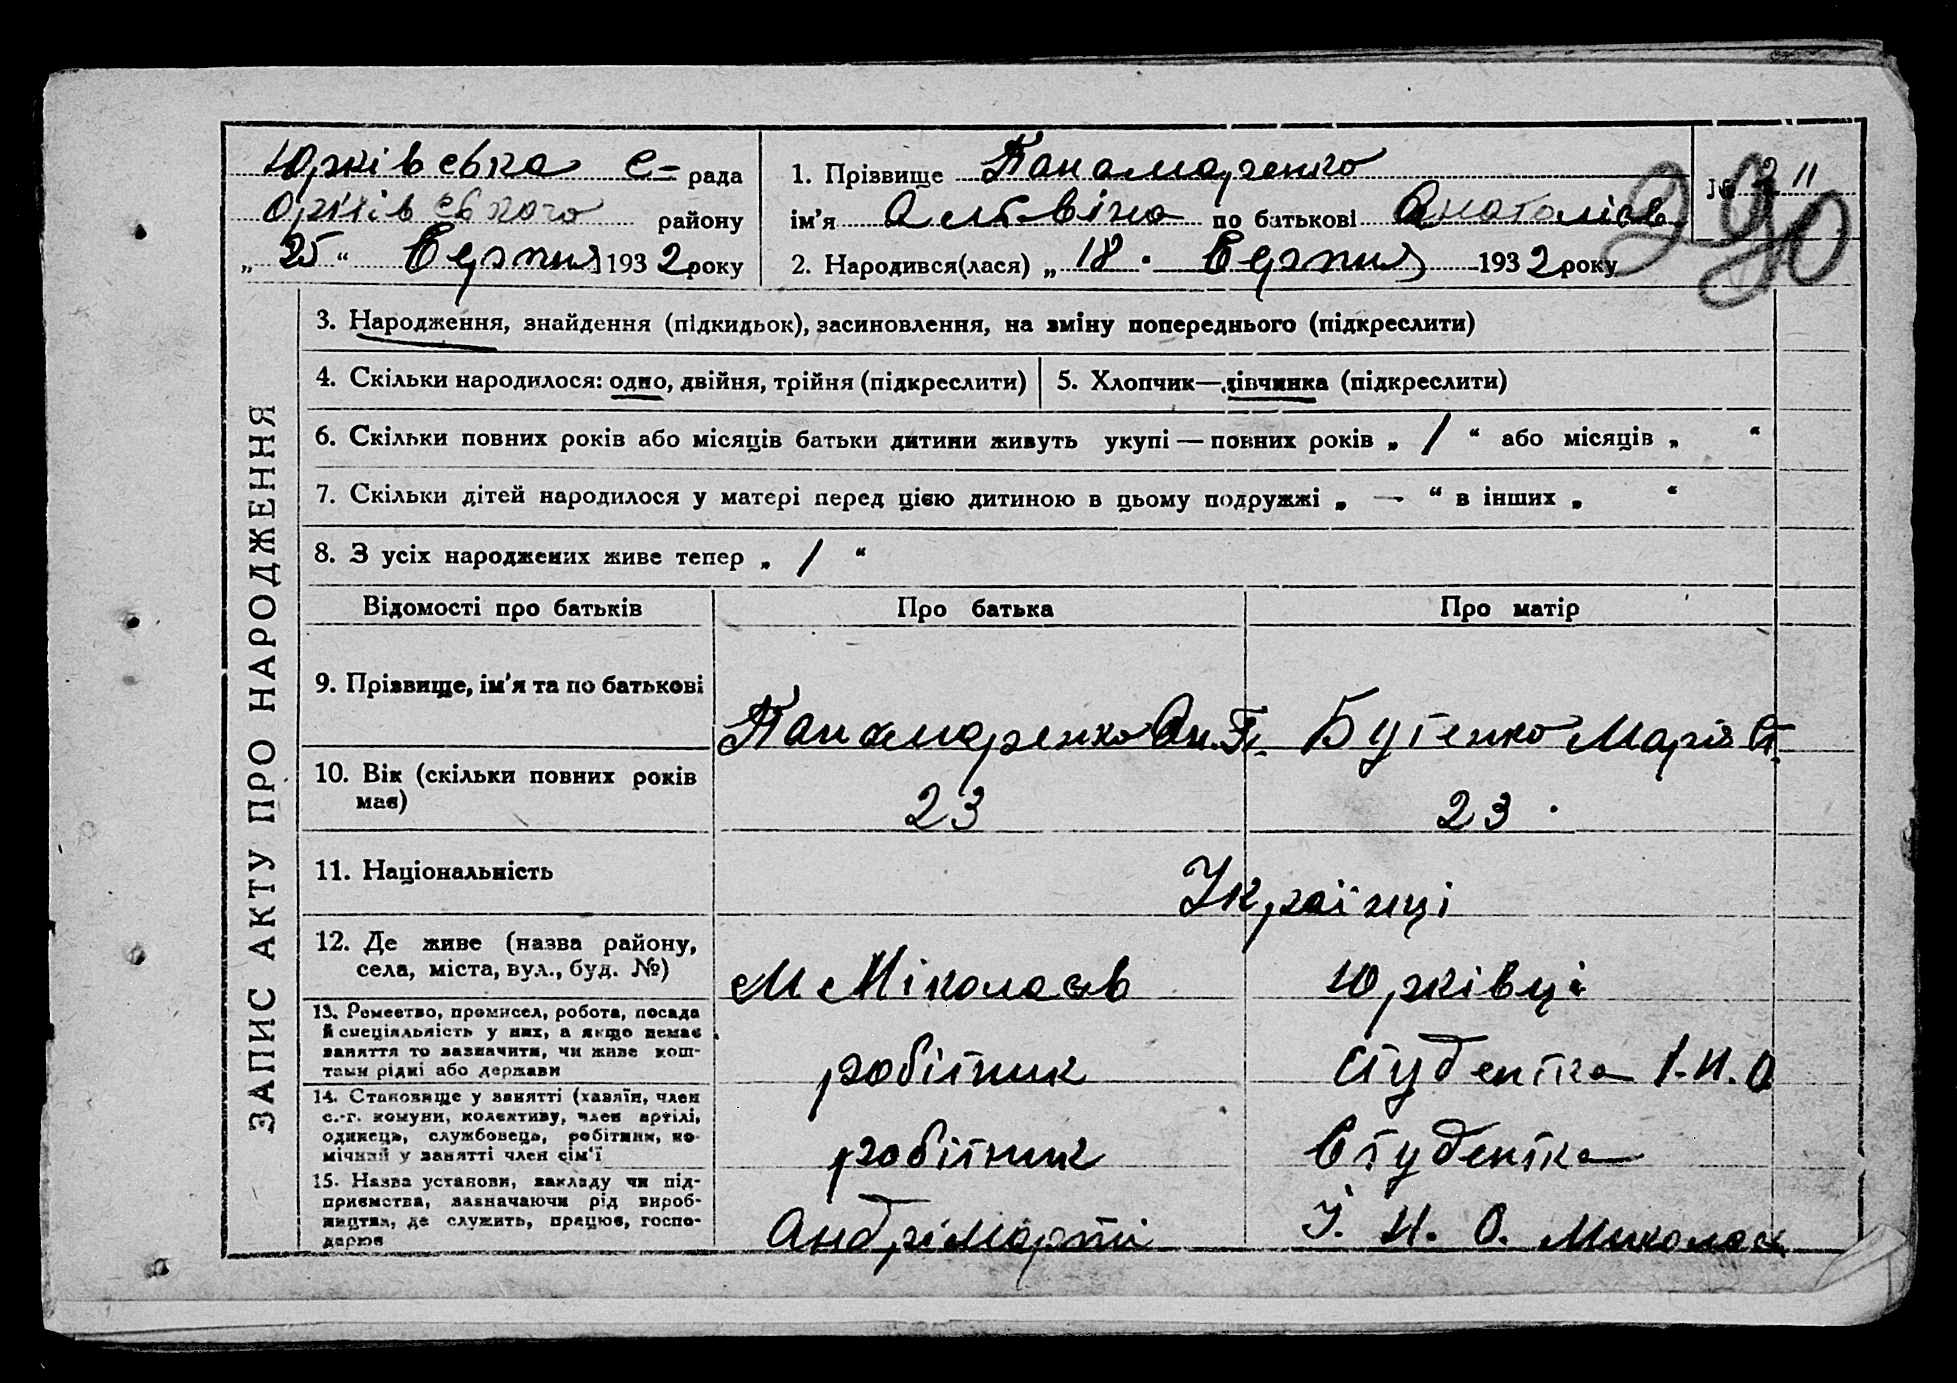 Юрківська с- рада
району
„ 25 “ Серпня 1932 року
1. Прізвище Панамаренко
ім’я Альвіна по батькові Анатоліев
2. Народився(лася) „ 18 . Серпня 1932 року
№ 211
290
ЗАПИС АКТУ ПРО НАРОДЖЕННЯ
3. Народження, знайдення (підкидьок), засиновлення, на зміну попереднього (підкреслити)
4. Скільки народилося: одно, двійня, трійня (підкреслити)
5. Хлопчик—дівчинка (підкреслити)
6. Скільки повних років або місяців батьки дитини живуть укупі — повних років „ / “ або місяців „ “
7. Скільки дітей народилося у матері перед цією дитиною в цьому подружжі „ — “ в інших „ “
8. З усіх народжених живе тепер „ / “
Відомості про батьків
Про батька
Про матір
9. Прізвище, ім’я та по батькові
Панамаренко Ан. П.
Бутенко Марія
10. Вік (скільки повних років
має)
23
23 .
11. Національність
Українці
12. Де живе (назва району,
села, міста, вул., буд. №)
М Міколаєв
Юрківці
13. Ремество, промисел, робота, посада
й спеціяльність у них, а якщо немає
заняття то зазначити, чи живе кош-
тами рідні або держави
робітник
студентка І.Н.О
14. Становище у занятті (хазяїн, член
с.-г. комуни, колективу, член артілі,
одинець, службовець, робітник, по-
мічний у занятті член сім’ї
робітник
Студентка
15. Назва установи, закладу чи під-
приємства, зазначаючи рід вироб-
ництва, де служить, працює, госпо-
дарює
Андрі Марті
І. Н. О. Миколаєв